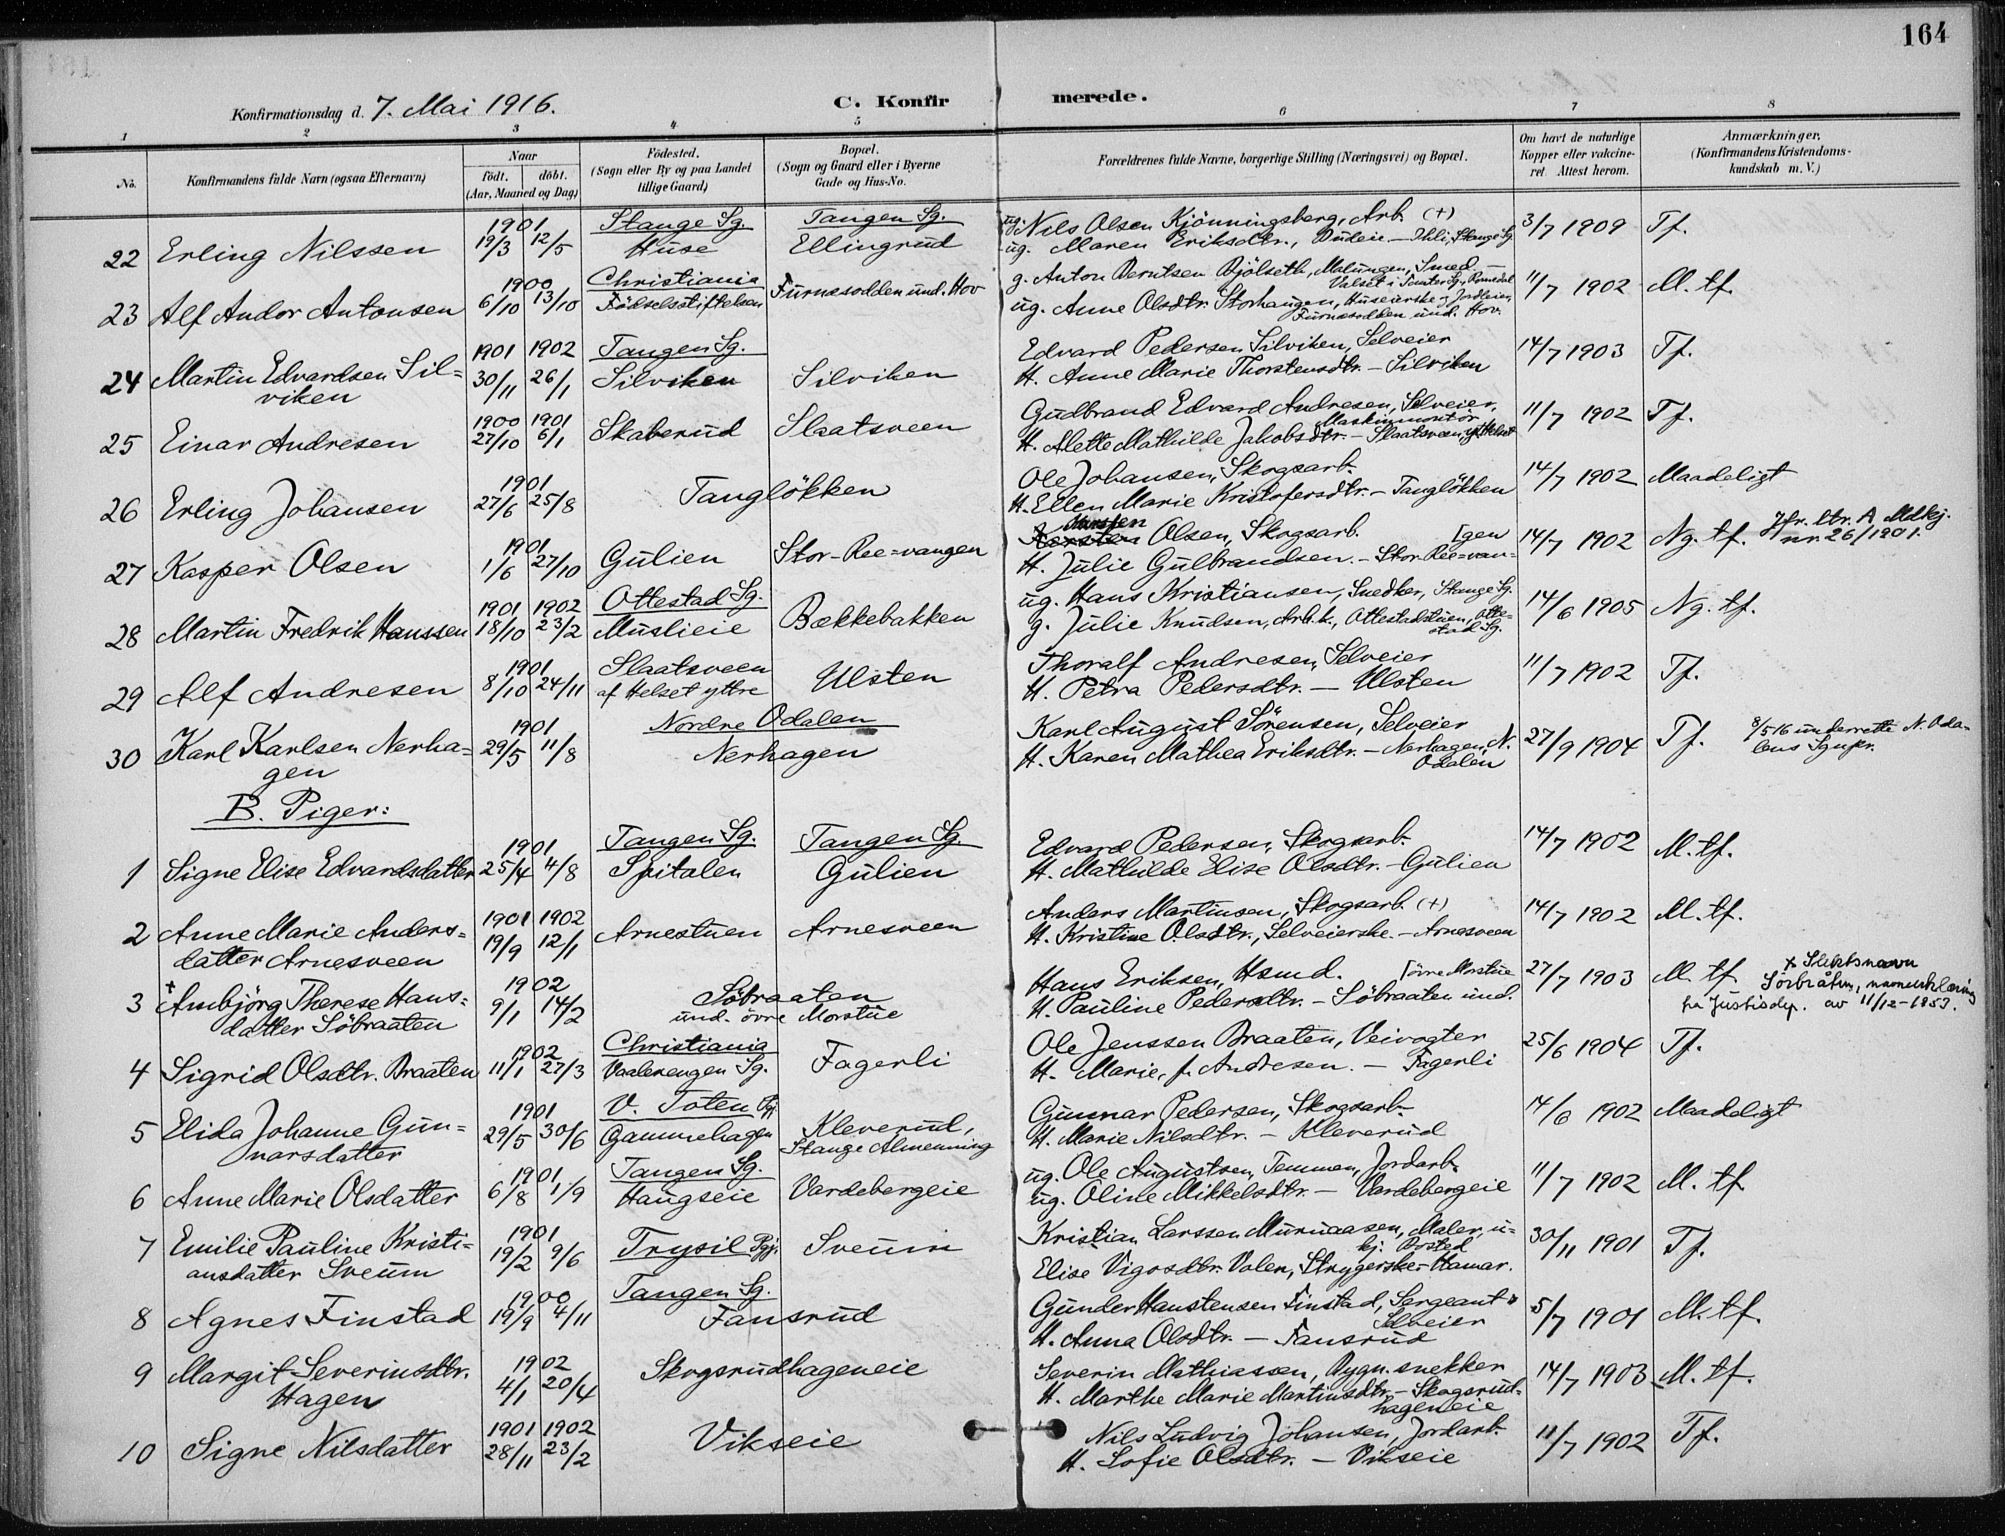 164
Konfirmationsdag d. 7. Mai 1916. C. Konfirmerede.
1 2 3 4 5 6 7 8
No. Konfirmandens fulde Navn (ogsaa Efternavn) Naar födt. döbt. (Aar, Maaned og Dag) Födested. (Sogn eller By og paa Landet tillige Gaard) Bopæl. (Sogn og Gaard eller i Byerne Gade og Hus-No. Forældrenes fulde Navne, borgerlige Stilling (Næringsvei) og Bopæl. Om havt de naturlige Kopper eller vakcineret Attest herom. Anmærkninger. (Konfirmandens Kristendomskundskab m. V.)
1901 Stange Sg. Tangen Sg. ug. Nils Olsen Kjönningsberg, Arb. (+) 3/7 1909 Tf.
22 Erling Nilssen 19/3 12/5 Huse Ellingrud ug. Maren Eriksdtr., Budeie - Ihli, Stange Sg
1900 Christiania Furnesodden und. Hov g. Anton Berntsen Bjölseth, Malungen, Smed
23 Alf Andor Antonsen 6/10 13/10 Födselsstiftelsen Valset i Tomter Sg, Romedal 11/7 1902 M. tf.
ug. Anne Olsdtr. Storhaugen, Huseierske og Jordleier, Furnesodden und. Hov.
1901 1902 Tangen Sg. Edvard Pedersen Silviken, Selveier 14/7 1903 Tf.
24 Martin Edvardsen Sil- 30/11 26/1 Silviken Silviken H. Anne Marie Thorstensdtr. - Silviken
viken
1900 1901 Gudbrand Edvard Andresen, Selveier, Maskinmontör 11/7 1902 Tf.
25 Einar Andresen 27/10 6/1 Skaberud Slaatsveen H. Alette Mathilde Jakobsdtr. - Slaatsveen, yt. Helset
1901 Ole Johansen, Skogsarb.
26 Erling Johansen 27/6 25/8 Tanglökken H. Ellen Marie Kristofersdtr. - Tanglökken 14/7 1902 Maadeligt
1901 Olsen, Skogsarb. [gen 14/7 1902 Ng. tf. Jfr. ltr. A Mdkj. nr. 26/1901.
27 Kasper Olsen 1/6 27/10 Gulien Stor-Ree=vangen H. Julie Gulbrandsen. - Stor-Ree=van-
1901 1902 Ottestad Sg. ug. Hans Kristiansen, Snedker, Stange Sg.
28 Martin Fredrik Hanssen 18/10 23/2 Muslieie Bækkebakken g. Julie Knudsen, Arb.k., Ottestadstuen, Ottestad Sg. 14/6 1905 Ng. tf.
1901 Slaatsveen Thoralf Andresen, Selveier
29 Alf Andresen 8/10 24/11 af Helset yttre Ulsten H. Petra Pedersdtr. - Ulsten 11/7 1902 Tf.
1901 Nordre Odalen Karl August Sörensen, Selveier
30 Karl Karlsen Nerha- 29/5 11/8 Nerhagen H. Karen Mathea Eriksdtr. - Nerhagen, N. Odalen 27/9 1904 Tf. 8/5 16 underrette N. Odalens Sgnpr.
gen
B. Piger:
1901 Tangen Sg. Tangen Sg. Edvard Pedersen, Skogsarb. 14/7 1902 M. tf.
1 Signe Elise Edvardsdatter 25/4 4/8 Spitalen Gulien H. Mathilde Elise Olsdtr. - Gulien
1901 1902 Anders Martinsen, Skogsarb. (+) 14/7 1902 M. tf.
2 Anne Marie Anders- 19/9 12/1 Arnestuen Arnesveen H. Kristine Olsdtr., Selveierske. - Arnesveen
datter Arnesveen
1902 Hans Eriksen, Hsmd. [övre Morstue 27/7 1903 M. tf. x Slektsnavn Sörbråten, navneerklæring fra Justisdep. av 11/12-1953.
3 +Ambjörg Therese Hans- 9/1 14/2 Söbraaten und. övre Morstue H. Pauline Pedersdtr. - Söbraaten und.
datter Söbraaten
1902 Christiania Ole Jenssen Braaten, Veivogter 25/6 1904 Tf.
4 Sigrid Olsdtr. Braaten 11/1 27/3 Vaalerengen Sg. Fagerli H. Marie, f. Andresen. - Fagerli
1901 V. Toten Pgj. Gunnar Pedersen, Skogsarb. 14/6 1902 Maadeligt
5 Elida Johanne Gun- 29/5 30/6 Gammehagen Kleverud, Stange Almenning H. Marie Nilsdtr. - Kleverud
narsdatter
1901 Tangen Sg. ug. Ole Augustsen, Temmen, Jordarb.
6 Anne Marie Olsdatter 6/8 1/9 Haugseie Vardebergeie ug. Oline Mikkelsdtr. - Vardebergeie 11/7 1902 M. tf.
1901 Kristian Larssen Muruaasen, Maler, u- kj. Bosted 30/11 1901 Tf.
7 Emilie Pauline Kristi- 19/2 9/6 Trysil Pgj. Sveum
ansdatter Sveum Elise Vigosdtr. Volen, Strygerske - Hamar.
1900 Tangen Sg. Gunder Haustensen Finstad, Sergeant & Selveier 5/7 1901 M. tf.
8 Agnes Finstad 19/9 4/11 Fansrud H. Anna Olsdtr. - Fansrud
1902 Severin Mathiassen, Bygn. snekker
9 Margit Severinsdtr. 4/1 20/4 Skogsrudhageneie H. Marthe Marie Martinsdtr. - Skogsrud-hageneie 14/7 1903 M. tf.
Hagen
1901 1902 Nils Ludvig Johansen, Jordarb.
10 Signe Nilsdatter 28/11 23/2 Vikseie H. Sofie Olsdtr. - Vikseie 11/7 1902 Tf.